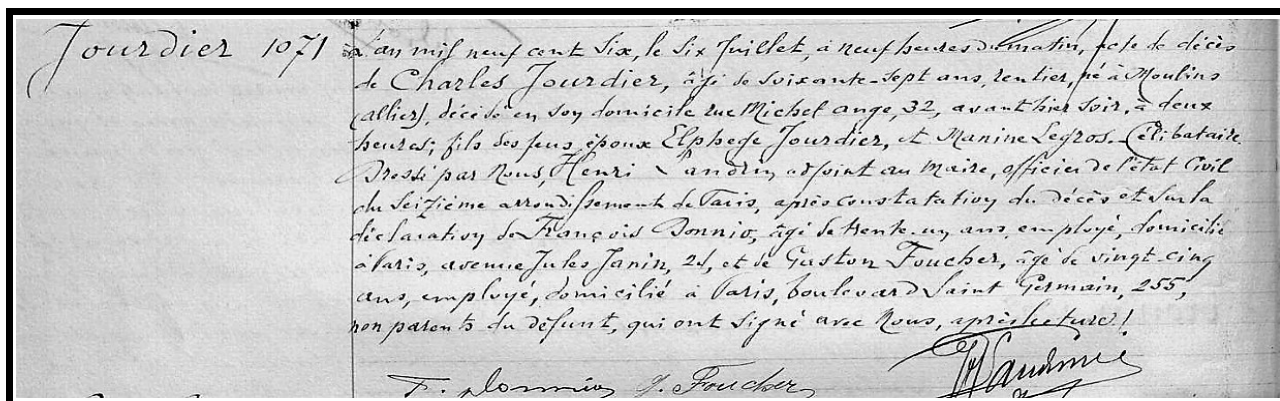 Jourdier 1071
L'an mil neuf cent Six, le Six Juillet, à neuf heures du matin, acte de décès
de Charles Jourdier, âgé de Soixante-Sept ans, rentier, né à Moulins
(allier), décédé en son domicile rue Michel ange, 32, avant hier soir, à deux
heures; fils des feus époux Elphege Jourdier, et Manine Legros. Célibataire.
Dressé par Nous, Henri Landrin, adjoint au Maire, officier de l'état Civil
du Seizième arrondissement de Paris, après constatation du décès et sur la
déclaration de François Bonnio, âgé de trente-un ans, employé, domicilié
à Paris, avenue Jules Janin, 21, et de Gaston Foucher, âgé de vingt-cinq
ans, employé, domicilié à Paris, boulevard Saint Germain, 255,
non parents du défunt, qui ont signé avec Nous, après lecture!
G. Foucher